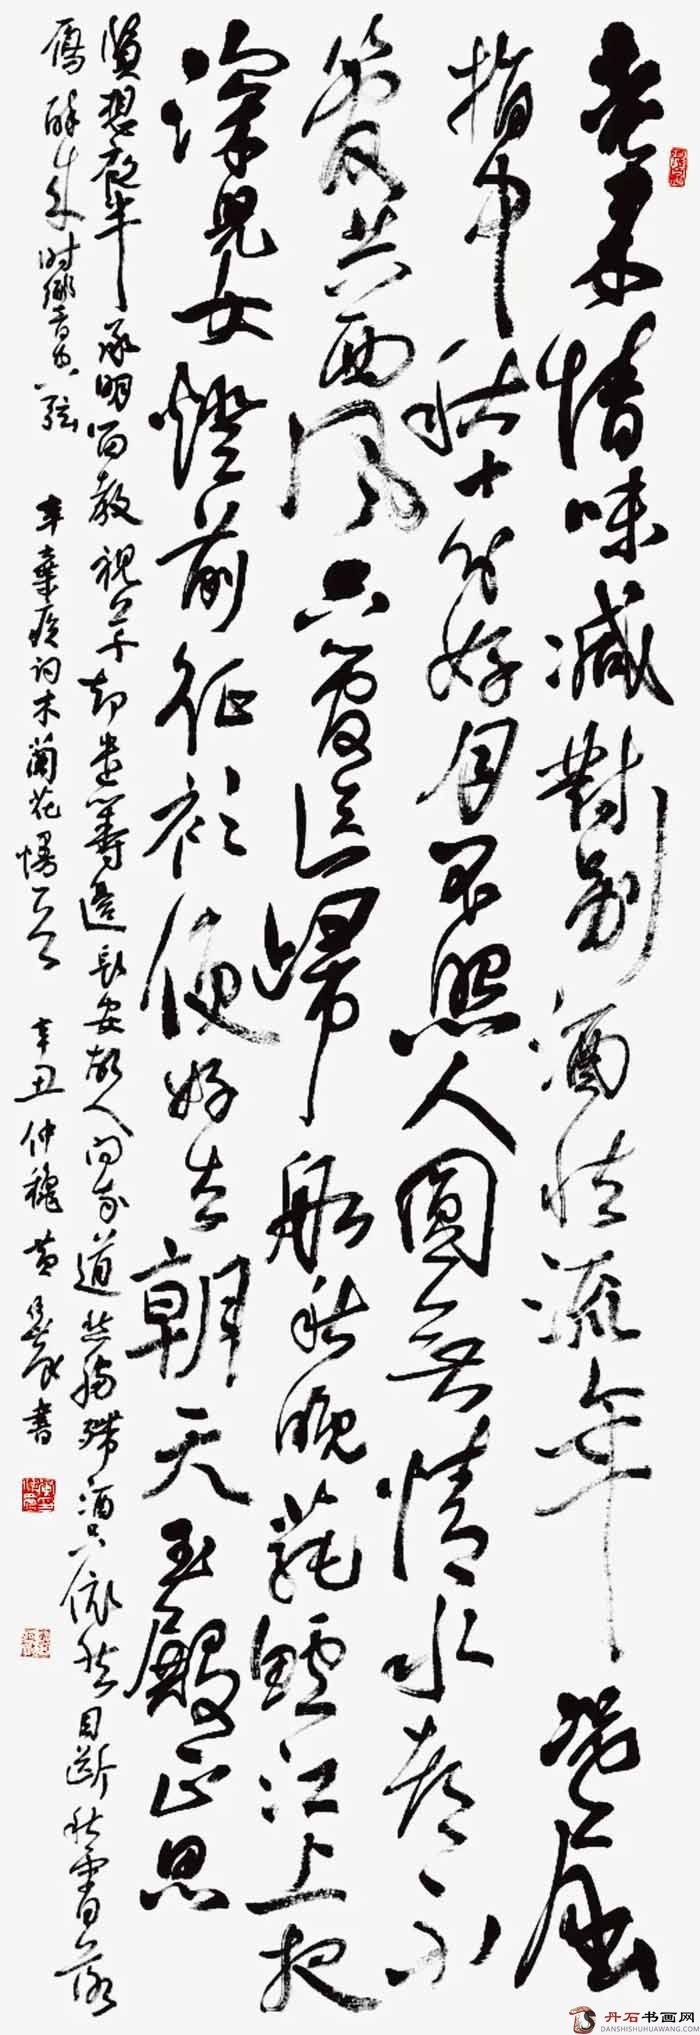 老来情味減對別酒怯流年況屈
指中秋十分好月不照人圓無情水都不
管共西風只管送歸船秋晚蒓鱸江上夜
深兒女燈前征衫便好去朝天玉殿正思
賢想夜半承明留教視草却遣籌邊長安故人問我道愁腸殢酒只依然目断秋霄落
雁醉来时響空弦 辛棄疾词木蘭花慢一首 辛丑仲穐黄書
丹石书画网
DANSHISHUHUAWANG.COM